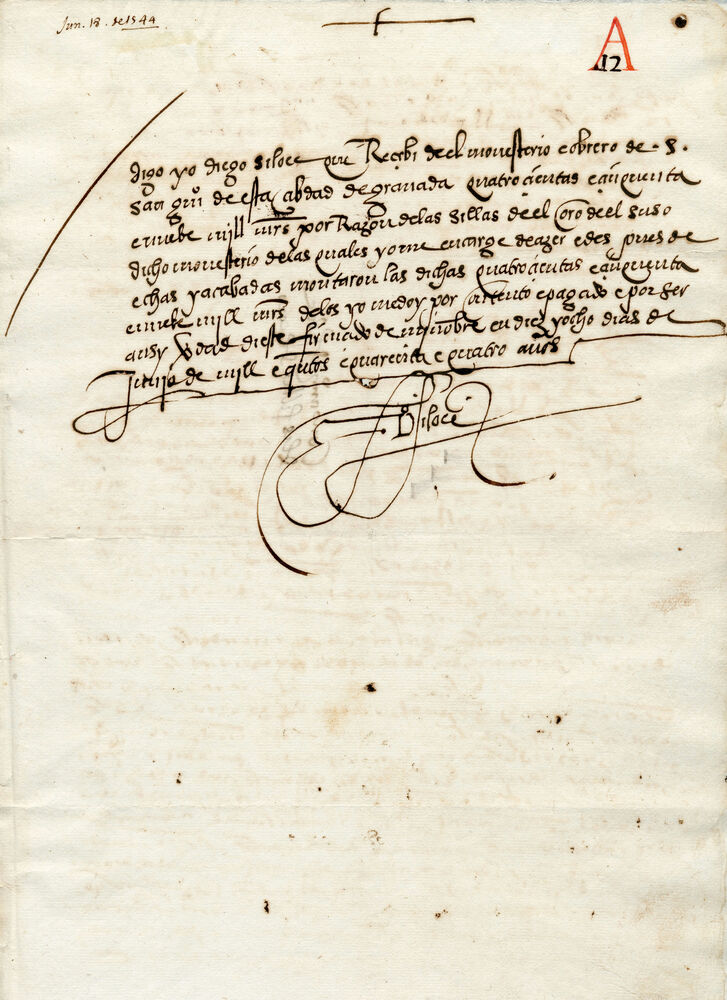 Jun. 18. de 1544
A
12
digo yo diego siloee que Recebi de el monesterio e obrero de. S.
San grmo de esta cibdad de granada quatrocientas e cinquenta
e nuebe mill mrs por Razon de las sillas de el Coro de el suso
dicho monesterio de las quales yo me encarge de azer e des pues de
echas y acabadas montaron las dichas quatrocientas e cinquenta
e nuebe mill mrs de los yo me doy por contento e pagado e por ser
ansy vdad di este firmado de mi nobre en diez y ocho dias de
Junio de mill e qutos e quarenta e quatro años
D siloee